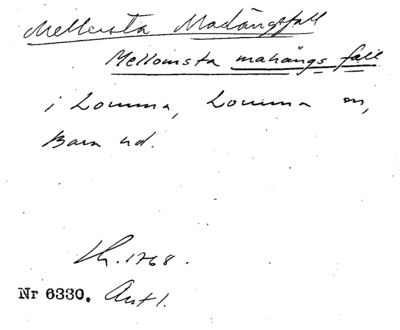 Mellersta Madängsfall
Mellomsta mahängs fall
i Lomma, Lomma sn,
Bara hd.
Lh. 1768.
Nr 6330. Ant 1.